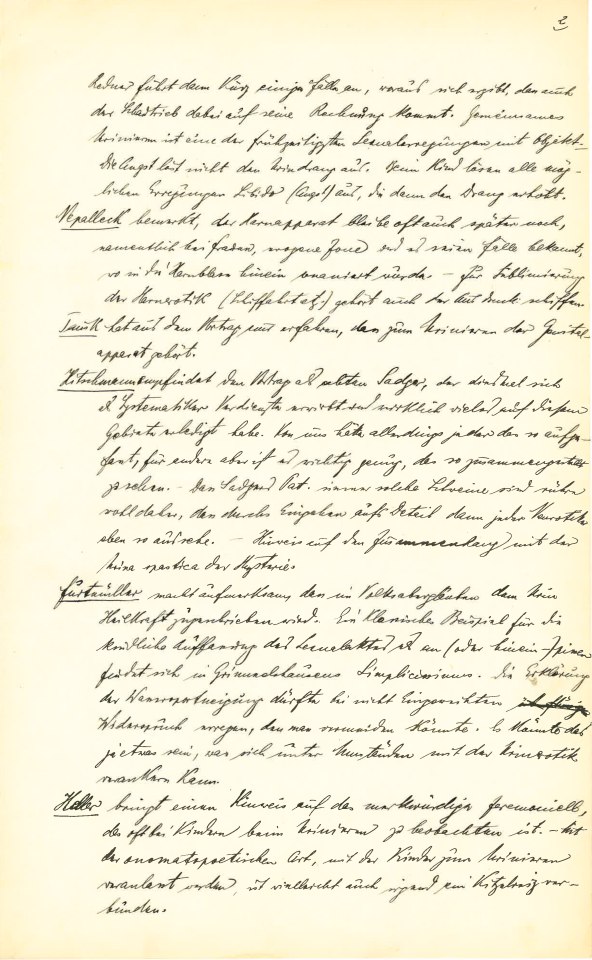 2
Redner führt dann kurz einige Fälle an, woraus sich ergibt, dass auch
der Schautrieb dabei auf seine Rechnung kommt. Gemeinsames
Urinieren ist eine der frühzeitigsten Sexualerregungen mit Objekt.
Die Angst löst nicht den Urindrang aus. Beim Kind lösen alle mög-
lichen Erregungen Libido (Angst) aus, die dann den Drang erhöht.
Nepalleck bemerkt, der Harnapparat bleibe oft auch später noch,
namentlich bei Frauen, erogene Zone und es seien Fälle bekannt,
wo in die Harnblase hinein onaniert wurde. — Zur Sublimierung
der Harnerotik (Schiffahrt etz.) gehört auch der Ausdruck schiffen.
Tausk hat aus dem Vortrag erfahren, dass zum Urinieren der Genital-
apparat gehört.
Hitschmann empfindet den Vortrag als echten Sadger, der diesmal sich
als Systematiker Verdienste erwirbt und wirklich vieles auf diesem
Gebiete erledigt habe. Von uns hätte allerdings jeder das so aufge-
fasst, für andere aber ist es wichtig genug, das so zusammengestellt
zu sehen. — Dass Sadgers Pat. immer solche Schweine sind rühre
wohl daher, dass durchs Eingehen aufs Detail dann jeder Neurotiker
eben so aussehe. — Hinweis auf den Zusammenhang mit der
Urina spastica der Hysterie
Furtmüller macht aufmerksam dass im Volksaberglauben dem Urin
Heilkraft zugeschrieben wird. Ein klassisches Beispiel für die
kindliche Auffassung des Sexualaktes als an (oder hinein-) pissen
findet sich in Grimmelshausens Simplicissimus. Die Erklärung
der Wassersportneigung dürfte bei nicht Eingeweihten
Widerspruch erregen, den man vermeiden könnte. Es könnte das
ja etwas sein, was sich unter Umständen mit der Urinerotik
verankern kann.
Heller bringt einen Hinweis auf das merkwürdige Zeremoniell,
das oft bei Kindern beim Urinieren zu beobachten ist. — Mit
der onomatopoetischen Art, mit der Kinder zum Urinieren
veranlasst werden, ist vielleicht auch irgend ein Kitzelreiz ver-
bunden.